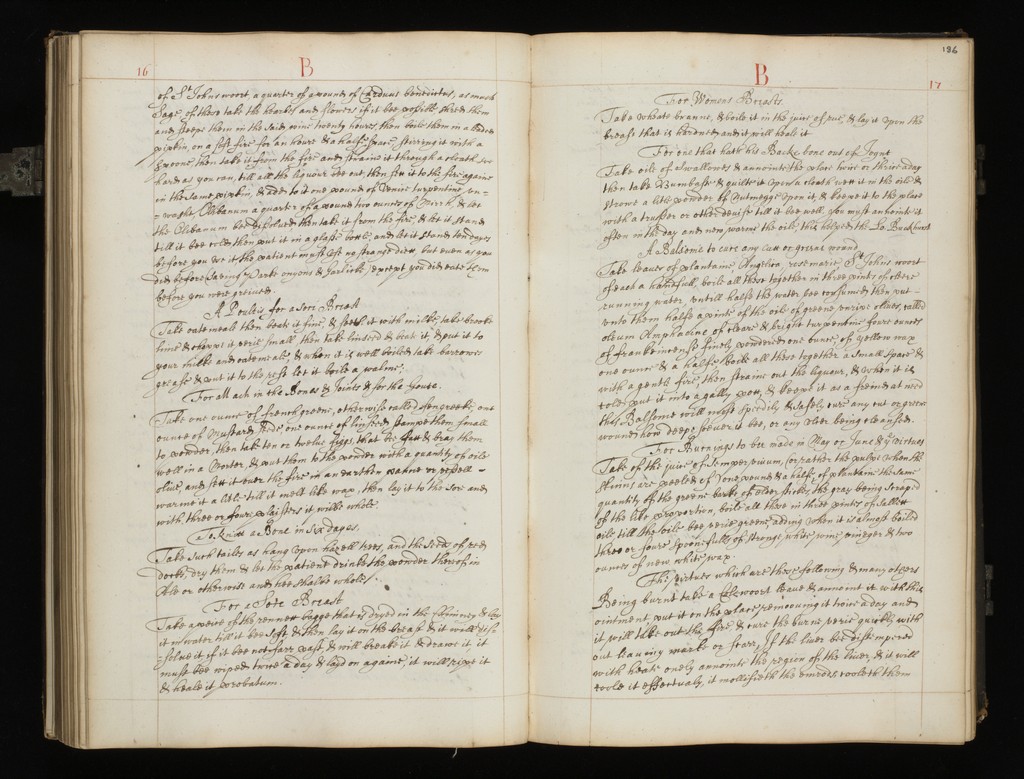 16
B
of St Johns woort a quarter of a pound of Carduus benedictus, as much
Sage, of these take the hearbes and flowers if it bee possible shred them
and steepe them in the said wine twenty houres, then boile them in a
pipkin, on a soft fire for an houre & a halfe space, stirring it with a
spoone then take it from the fire and straine it through a cloath soe
hard as you can, till all the liquour bee out, then sett it to the fire againe
in the same pipkin, & add to it one pound of Venice turpentine un-
washt Olibanum a quarter of a pound two ounces of Mirrh, & let
the Olibanum bee desolued then take it from the fire & let it stand
till it bee cold then put it in a glasse bottle, and let it stand ten dayes
before you use it the patient must use no strange diett but even as you
did before saving Porke onyons & garlick, except you did eate them
before you were greived.
A Poultis for a sore Breast
Take oatemeale then beate it fine, & seeth it with milke, take brooke
lime & choppe it verie small, then take linseed & beat it, & put it to
your milke and oatemeale, & when it is well boiled take barrowes
grease & put it to the rest let it boile a walme.
For all ach in the Bones & Joints & for the Goute.
Take one ounce of french greene, otherwise called fengreeke, one
ounce of Mustard seede one ounce of linseed stampe them small
to powder, then take ten or twelve figgs, that be fatt & bray them
well in a Morter, & put them to the powder with a quantity of oile
olive, and sett it over the fire in an earthen panne or vessell
warme it a litle till it melt like wax, then lay it to the sore and
with three or foure plaisters it wilbe whole.
To knitt a Bone in six dayes.
Take such tailes as hang upon hazell trees, and the seeds of red
docks, dry them & let the patient drinke the powder thereof in
Ale or otherwise and hee shalbe whole.
For a Sore Breast
Take a peice of the rennet bagge that is dryed in the Chimney & lay
it in water till it bee soft, & then lay it on the breast & it will diso
solve it if it bee not farr past, & will breake it & drawe it, it
must bee wiped twice a day & layd on againe, it will ripe it
& heale it probatum.
186
B
17
For Womens Breasts
Take wheate branne, & boile it in the juice of rue, & lay it upon the
breast that is hardned and it will heale it
For one that hath his Backe bone out of Joynt
Take oile of swallowes & annointe the place twice or thrice a day
then take Bumbast & quilt it upon a cloath wett it in the oile &
strowe a litle powder of Nutmeggs upon it, & keepe it to the place
with a trusser or other devise till it bee well, you must anointe it
often in the day and new warme the oile, this helped the La: Buckhurst
A Balsome to cure any cutt or greene wound
Take leaves of plantaine, Angelica, rosemarie, St Johns woort
of each a handfull, boile all these together in three pints of cleere
running water, untill halfe the water bee consumed then put
unto them halfe a pinte of the oile of greene unripe olives, called
oleum Omphacine of cleare & bright turpentine foure ounces
of frankincense finely powdered one ounce, of yellow wax
one ounce & a halfe, boile all these together a small space &
with a gentle fire, then straine out the liquour, & when it is
cold put it into a gally pott, & keepe it as a freind at need
this Balsome will most speedily & safely cure any cut or greene
wound how deepe soever it bee, or any ulcer being cleansed.
For Burnings to bee made in May or June & ye Virtues
Take of the juice of Sempervivum, (or rather the pulpe when the
skinns are peeled of) one pound & a halfe, of plantaine the same
quantity of the greene barke of elder stickes, the gray being scraped
of the like proportion, boile all these in three pintes of sallett
oile till the oile bee verie greene, adding when it is almost boiled
three or foure spoonefulls of stronge white wine vineger & two
ounces of new white wax.
The Virtues which are these following & many others
Being burnt take a Colewoort leave & annoint it with this
ointment put it on the place, remooving it twice a day and
it will take out the fire & cure the burne verie quickly with
out leaving marke or scarr, If the liver bee distempered
with heate onely annointe the region of the liver, & it will
coole it effectualy, it mollifieth the emrods, cooleth them